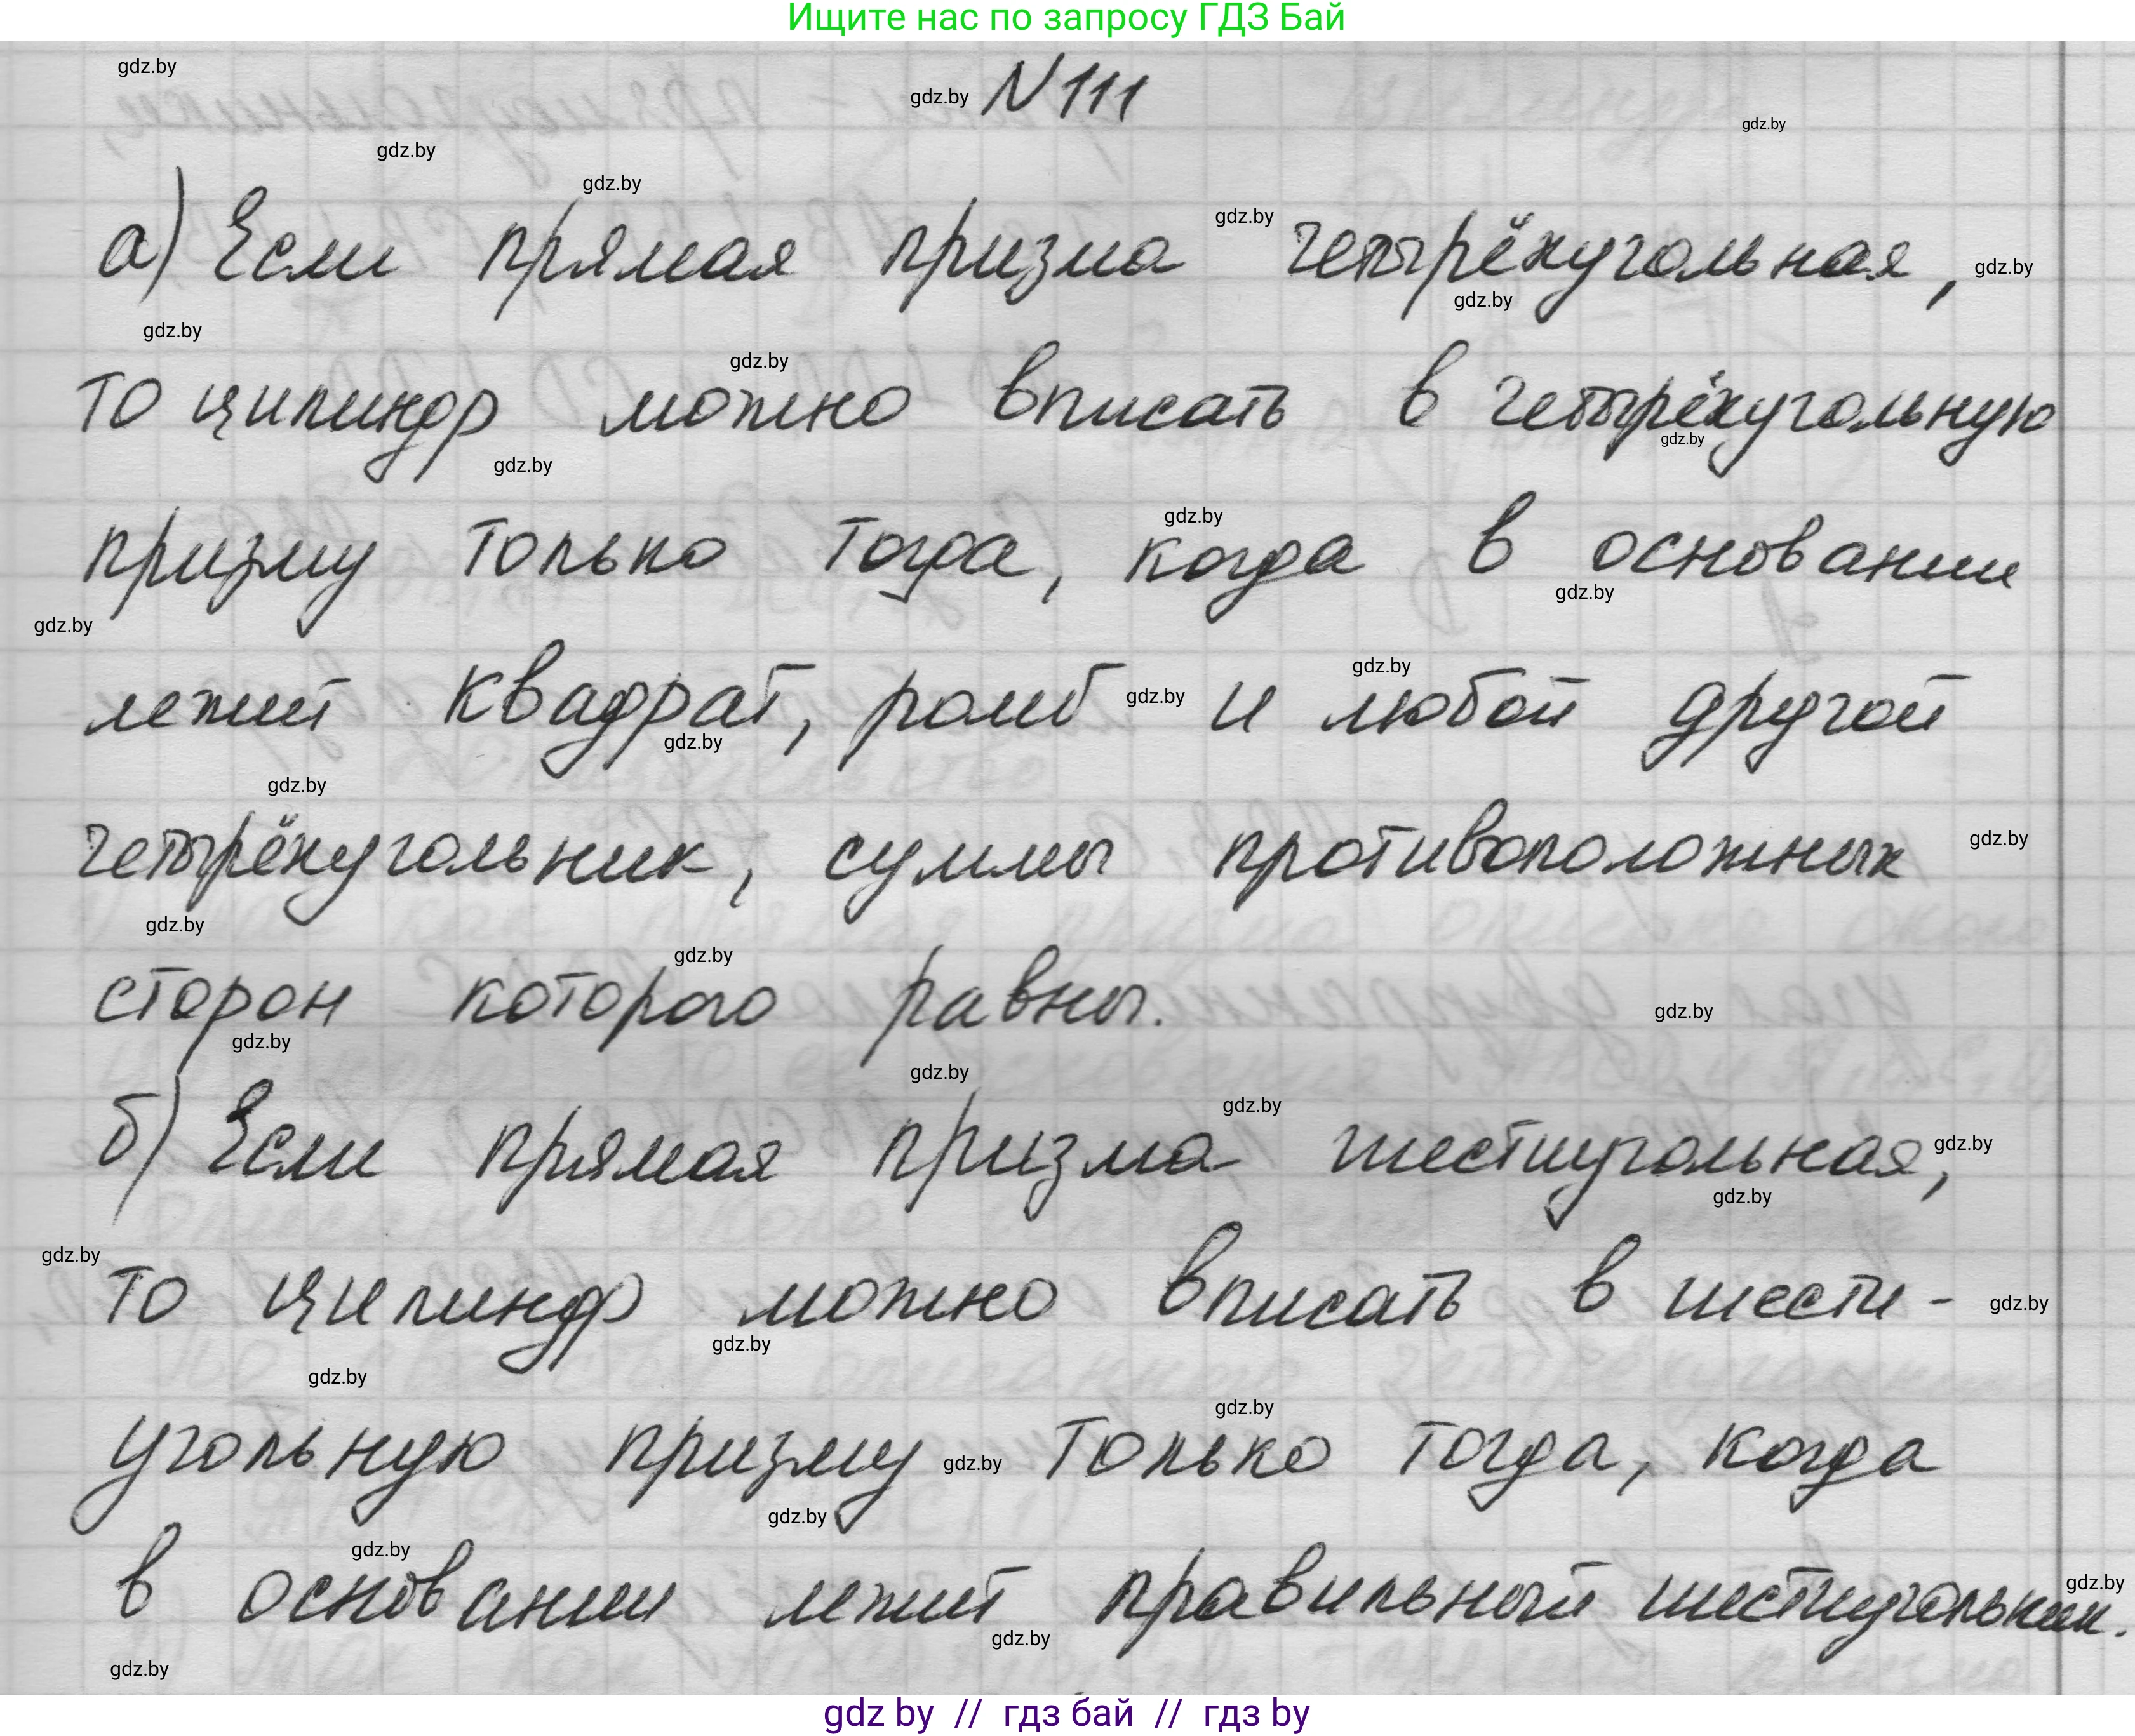 Ищите нас по запросу ГДЗ Бай
gdz.by
gdz.by N 111
gdz.by
gdz.by
gdz.by
gdz.by
а) Если прямая призма четырёхугольная, gdz.by
gdz.by
gdz.by
gdz.by
то цилиндр можно вписать в четырёхугольную
gdz.by
gdz.by
gdz.by
призму только тогда, когда в основании
gdz.by
gdz.by
gdz.by
лежит квадрат, ромб gdz.by и любой другой
gdz.by
gdz.by
gdz.by
четырёхугольник, суммы противоположных
gdz.by
gdz.by
сторон которого равны.
gdz.by
gdz.by
gdz.by
gdz.by
б) Если прямая призма шестиугольная, gdz.by
gdz.by
gdz.by
то цилиндр можно вписать в шести- gdz.by
gdz.by
gdz.by
gdz.by
угольную призму gdz.by только тогда, когда
gdz.by
gdz.by
в основании лежит правильный шестиугольник. gdz.by
gdz.by
gdz.by
gdz by // гдз бай // гдз by